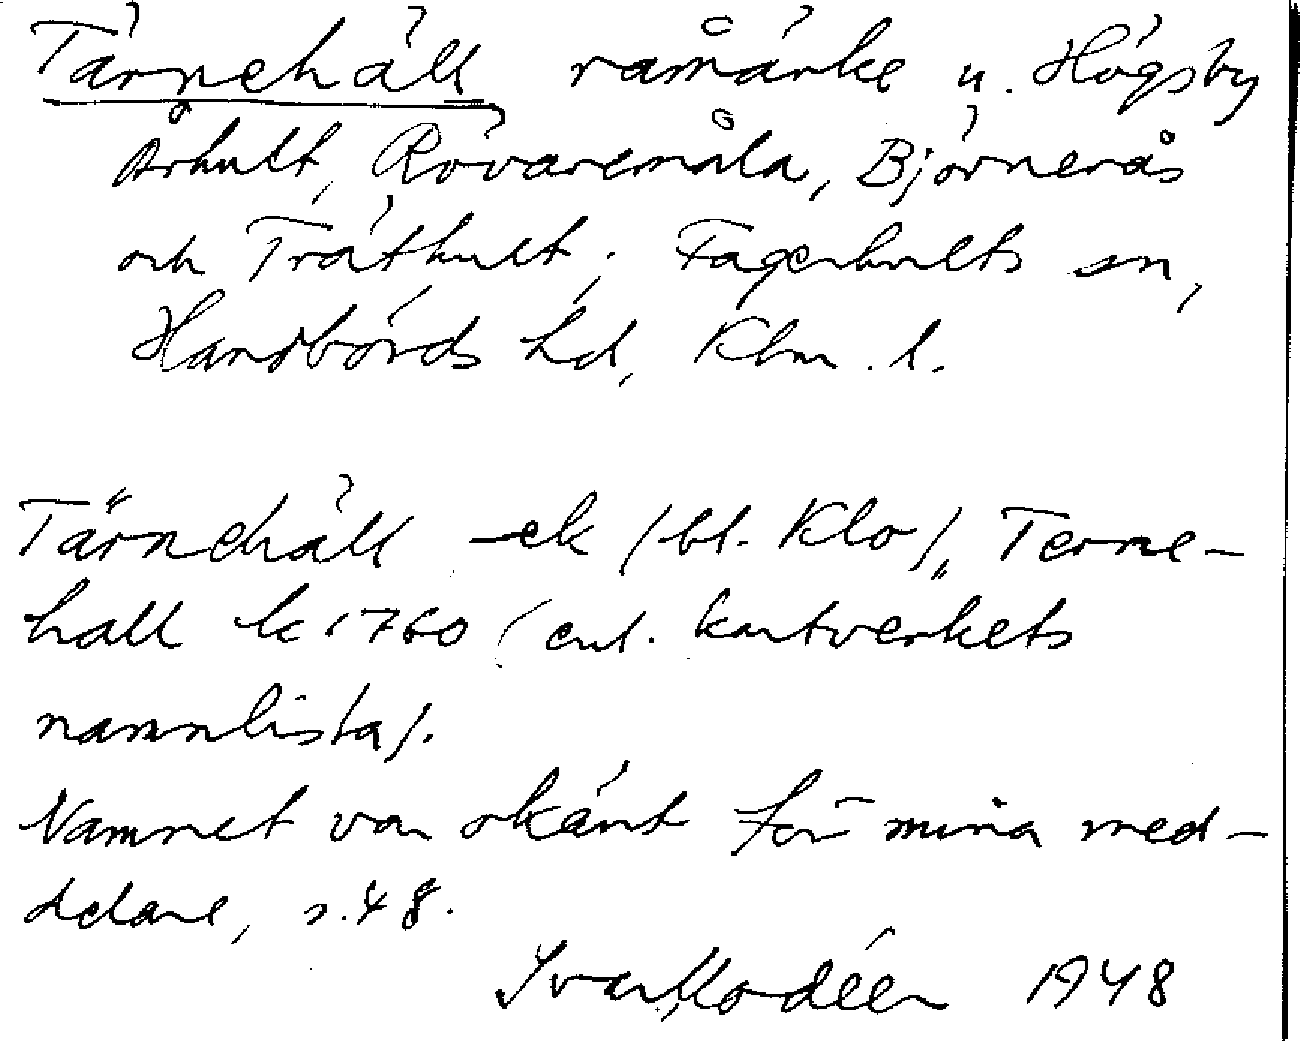 Tärnehäll råmärke u. Högsby
Århult, Rövaremåla, Björnerås
och Träthult; Fagerhults sn,
Handbörds hd, Klm. l.
Tärnehäll -ek (bl. Klo), Terne-
hall k 1760 (enl. kartverkets
namnlista).
Namnet var okänt för mina med-
delare, s. 48.
Ivar Modéer 1948